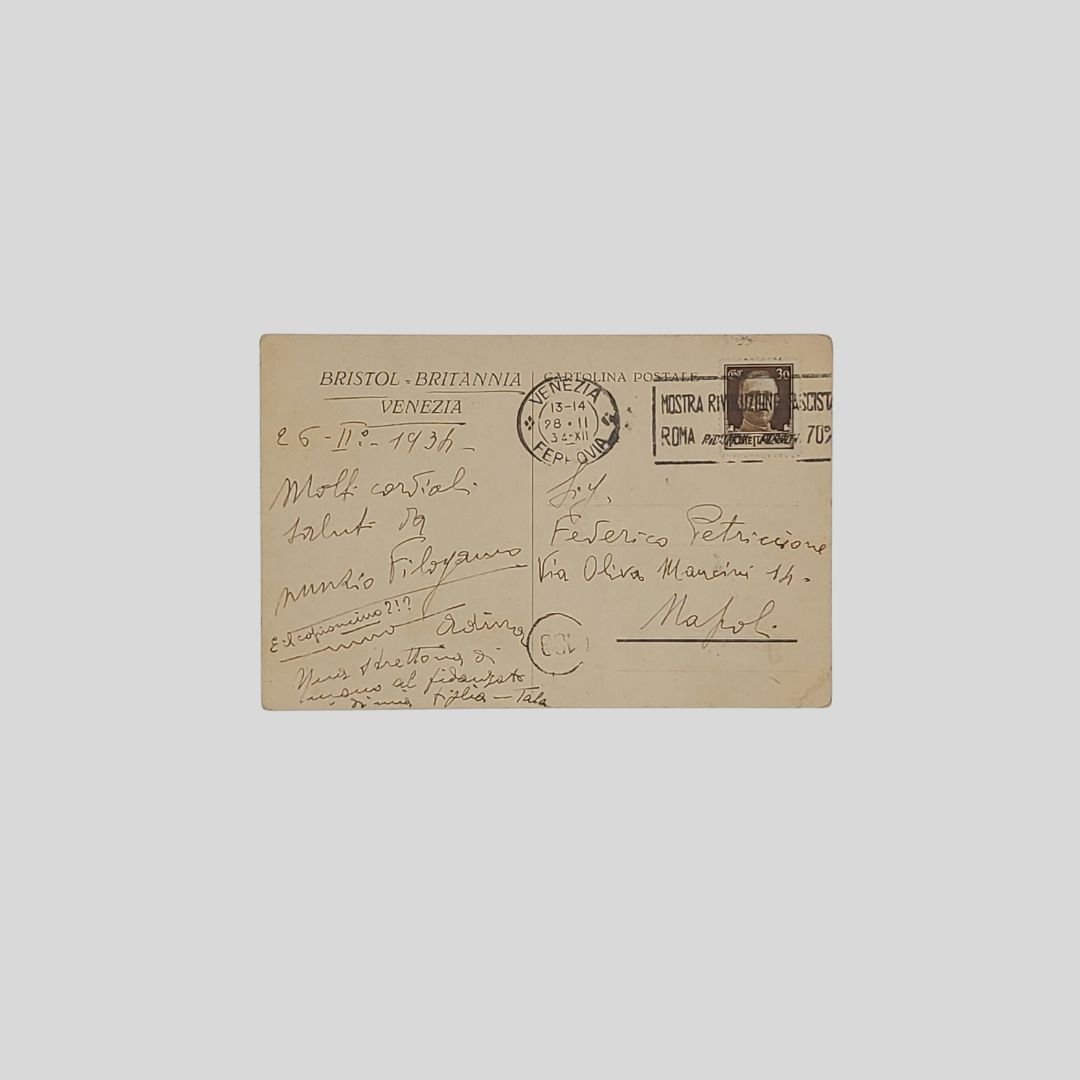 BRISTOL - BRITANNIA
VENEZIA
26 - II° - 1934 -
Molti cordiali
saluti da
nunzio Filogamo
E il copioncino?!?
Adina
Una strettona di
mano al fidanzato
di mia figlia - Tala
CARTOLINA POSTALE
VENEZIA
13-14
28 • II
34-XII
FERROVIA
30
MOSTRA RIVOLUZIONE FASCISTA
ROMA 70%
Sig.
Federico Petriccione
Via Oliva Mancini 14.
Napoli